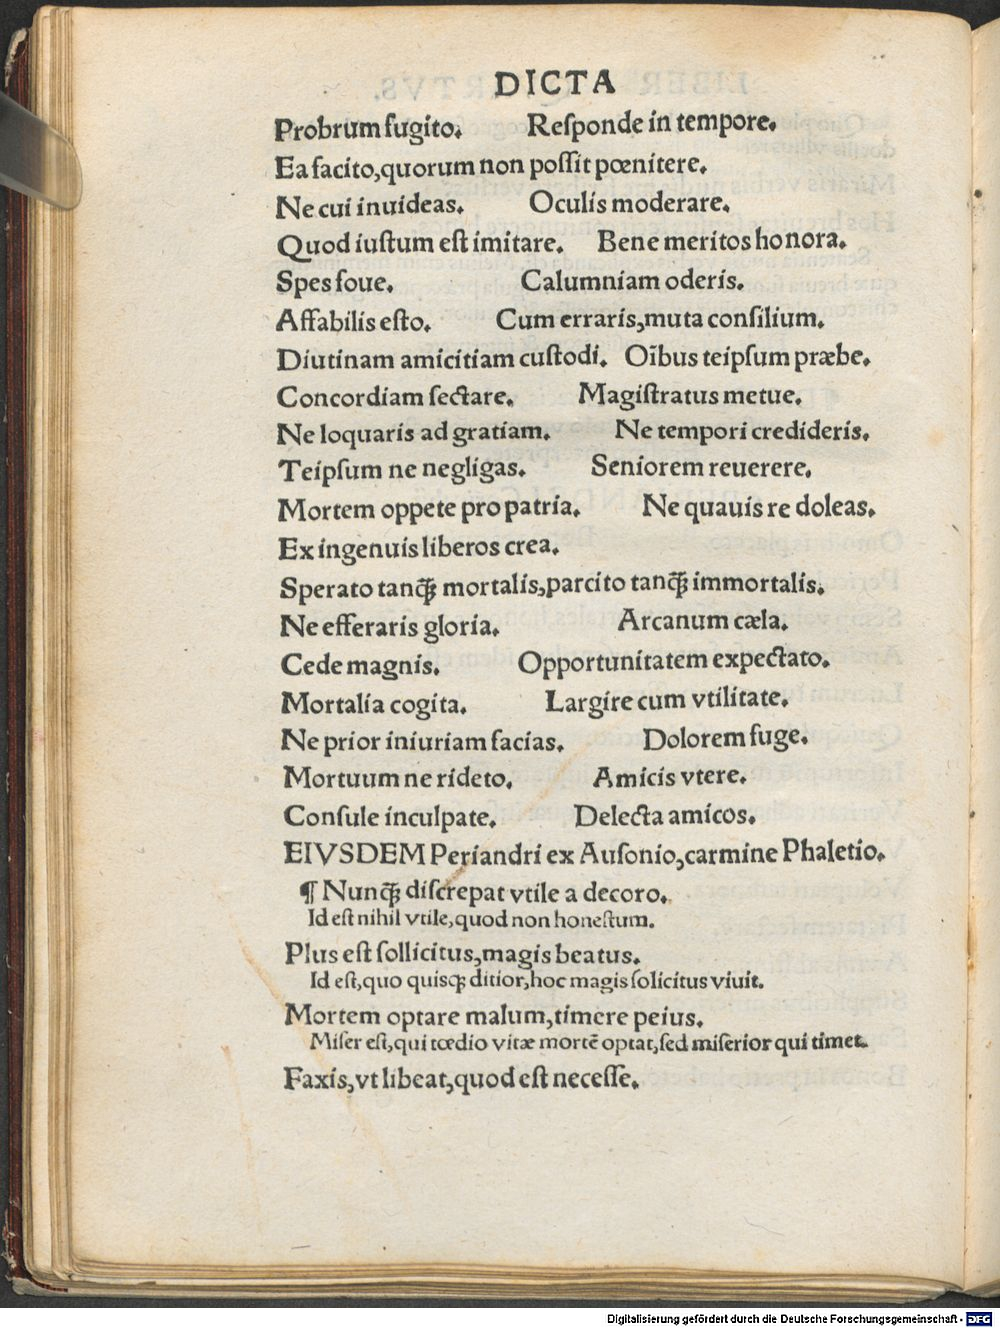 DICTA
Probrum fugito. Responde in tempore.
Ea facito, quorum non possit pœnitere.
Ne cui inuideas. Oculis moderare.
Quod iustum est imitare. Bene meritos honora.
Spes foue. Calumniam oderis.
Affabilis esto. Cum erraris, muta consilium.
Diutinam amicitiam custodi. Oībus teipsum præbe.
Concordiam sectare. Magistratus metue.
Ne loquaris ad gratiam. Ne tempori credideris.
Teipsum ne negligas. Seniorem reuerere.
Mortem oppete pro patria. Ne quauis re doleas.
Ex ingenuis liberos crea.
Sperato tanꝗ̃ mortalis, parcito tanꝗ̃ immortalis.
Ne efferaris gloria. Arcanum cæla.
Cede magnis. Opportunitatem expectato.
Mortalia cogita. Largire cum vtilitate.
Ne prior iniuriam facias. Dolorem fuge.
Mortuum ne rideto. Amicis vtere.
Consule inculpate. Delecta amicos.
EIVSDEM Periandri ex Ausonio, carmine Phaletio.
¶ Nunꝗ̃ discrepat vtile a decoro.
Id est nihil vtile, quod non honestum.
Plus est sollicitus, magis beatus.
Id est, quo quisꝗ ditior, hoc magis solicitus viuit.
Mortem optare malum, timere peius.
Miser est, qui tœdio vitæ mortē optat, sed miserior qui timet.
Faxis, vt libeat, quod est necesse.
Digitalisierung gefördert durch die Deutsche Forschungsgemeinschaft - DFG